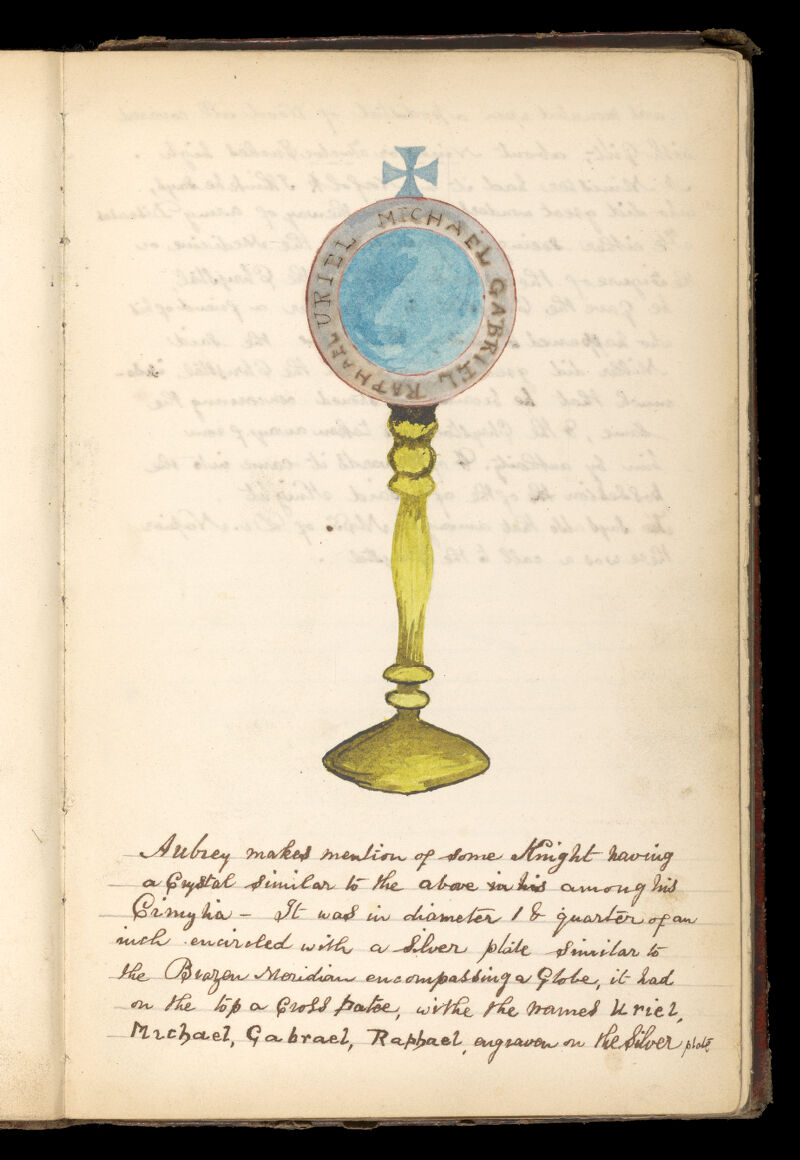 MICHAEL GABRIEL RAPHAEL URIEL
Aubrey makes mention of some Knight having
a Crystal similar to the above in his among his
Cimylia - It was in diameter 1 & quarter of an
inch encircled with a Silver plate similar to
the Brazen Meridian encompassing a Globe, it had
on the top a Cross patee, withe the names Uriel,
Michael, Gabrael, Raphael, engraven on the Silver plate